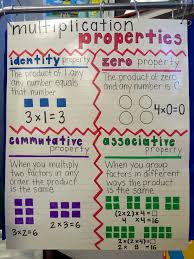 multiplication
properties
identity property
The product of 1 any
any number equals
that number
3x1=3
zero property
The product of zero
and any number is 0
4x0=0
commutative
property
When you multiply
two factors in any
order the product
is the same.
3x2=6
2x3=6
associative
property
When you group
factors in different
ways the product
is the same.
(2x2)x4
4 x 4 = 16
2x(2x4)
2 x 8 = 16